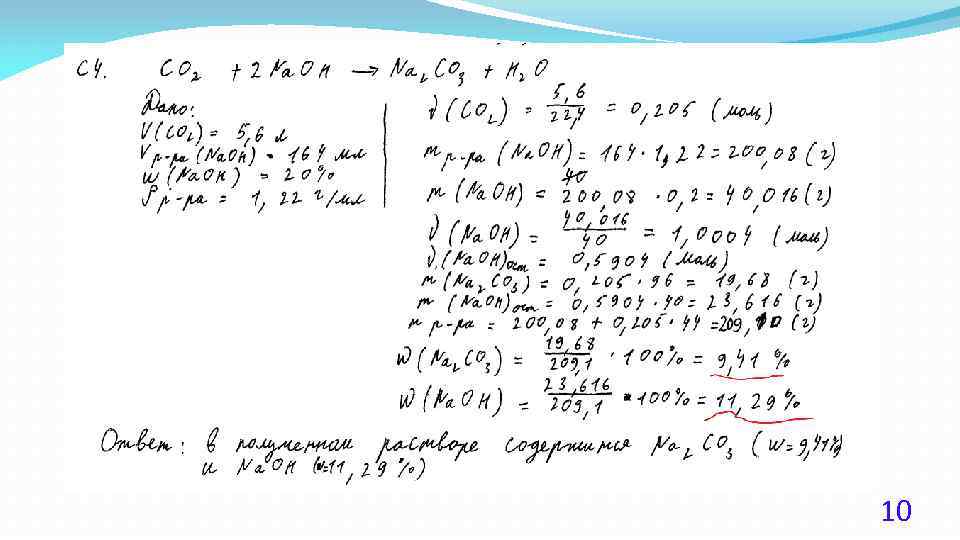 С4. CO₂ + 2 NaOH → Na₂CO₃ + H₂O
Дано:
V(CO₂) = 5,6 л
V р-ра (NaOH) = 164 мл
w (NaOH) = 20%
ρ р-ра = 1, 22 г/мл
ν (CO₂) = 5,6/22,4 = 0,205 (моль)
m р-ра (NaOH) = 164 · 1,22 = 200,08 (г)
40
m (NaOH) = 200,08 · 0,2 = 40,016 (г)
ν (NaOH) = 40,016/40 = 1,0004 (моль)
ν (NaOH)ост = 0,5904 (моль)
m (Na₂CO₃) = 0,205 · 96 = 19,68 (г)
m (NaOH)ост = 0,5904 · 40 = 23,616 (г)
m р-ра = 200,08 + 0,205 · 44 = 209,10 (г)
W (Na₂CO₃) = 19,68/209,1 · 100% = 9,41 %
W (NaOH) = 23,616/209,1 · 100% = 11,29%
Ответ: в полученном растворе содержится Na₂CO₃ (w=9,41%)
и NaOH (w=11,29%)
10